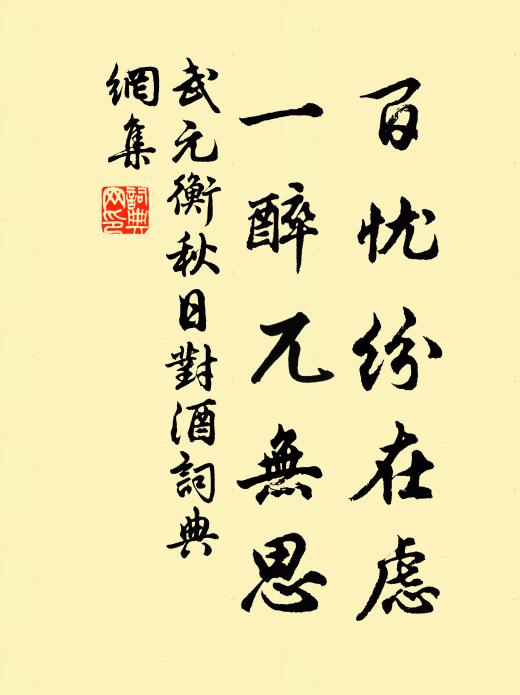 百忧纷在虑
一醉兀無思
武元衡秋日對酒詞典
網集
詞典
网印